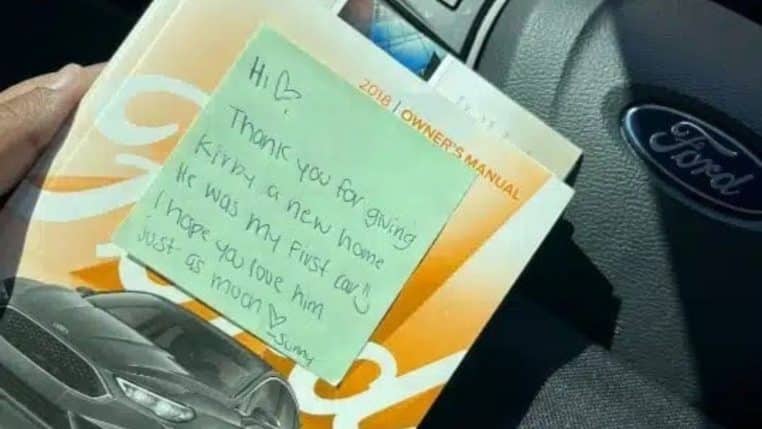 2018 | OWNER'S MANUAL
Hi ♡
Thank you for giving
Kirby a new home
He was my first car :)
I hope you love him
just as much ♡
-Sunny
Ford